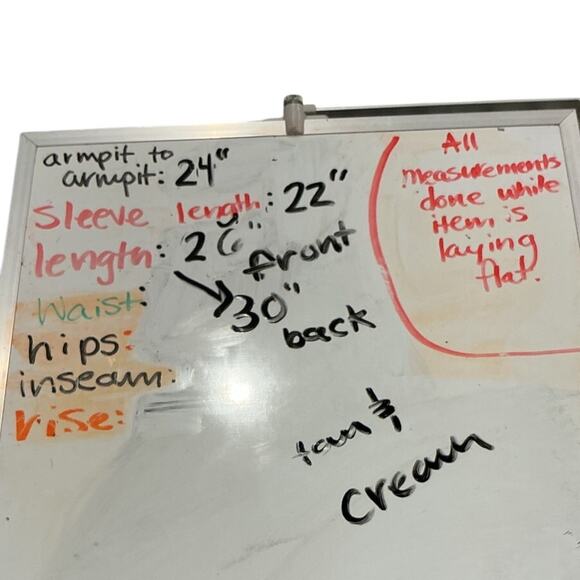 armpit to
armpit: 24"
sleeve length: 22"
length: 26" front
30" back
Waist:
hips:
inseam:
rise:
tan &
cream
All
measurements
done while
item is
laying
flat.